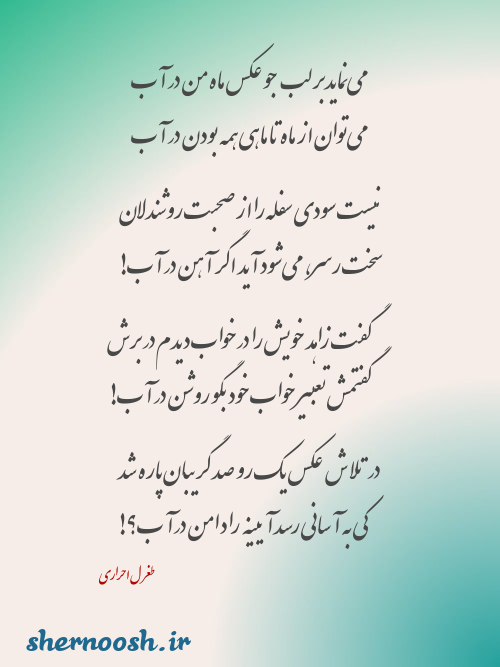 می‌نماید بر لب جو عکس ماه من در آب
می‌توان از ماه تا ماهی همه بودن در آب
نیست سودی سفله را از صحبت روشندلان
سخت رسر، می‌شود آید اگر آهن در آب!
گفت زاهد خویش را در خواب دیدم در برش
گفتمش تعبیر خواب خود بگو روشن در آب!
در تلاش عکس یک رو صد گریبان پاره شد
کی به آسانی رسد آیینه را دامن در آب؟!
طغرل احراری
shernoosh.ir